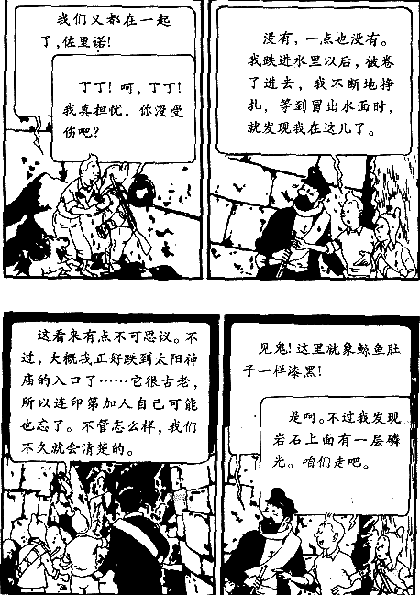 我们又都在一起
了,佐里诺!
丁丁!呵,丁丁!
我真担忧.你没受
伤吧?
没有,一点也没有。
我跌进水里以后,被卷
了进去,我不断地挣
扎,等到冒出水面时,
就发现我在这儿了。
这看来有点不可思议。不
过,大概我正好跌到太阳神
庙的入口了……它很古老,
所以连印第加人自己可能
也忘了。不管怎么样,我们
不久就会清楚的。
见鬼!这里就象鲸鱼肚
子一样漆黑!
是呵。不过我发现
岩石上面有一层磷
光。咱们走吧。